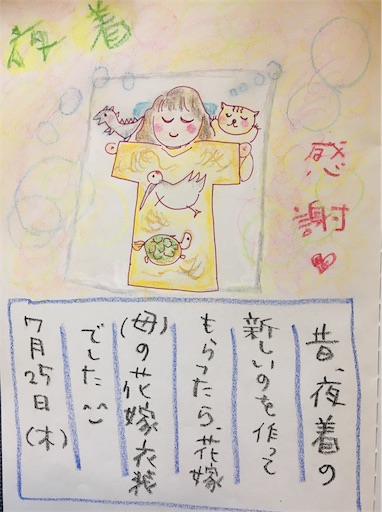 夜着
感謝
昔、夜着の
新しいのを作って
もらったら、花嫁
(母)の花嫁衣装
でした
7月25日(木)